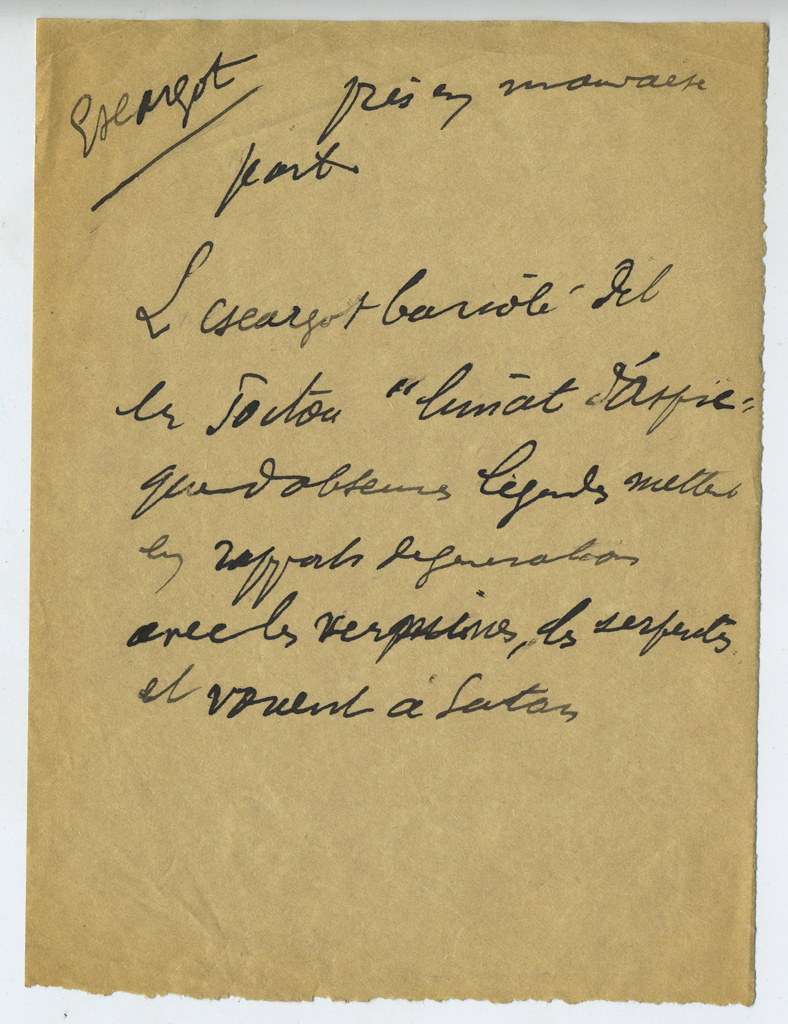 Escargot pris en mauvaise
part.
L'escargot bariolé del
en Poitou "limat d'Aspic"
que d'obscures légendes mettent
en rapports de generation
avec les vermines, les serpents
et vouent à Satan